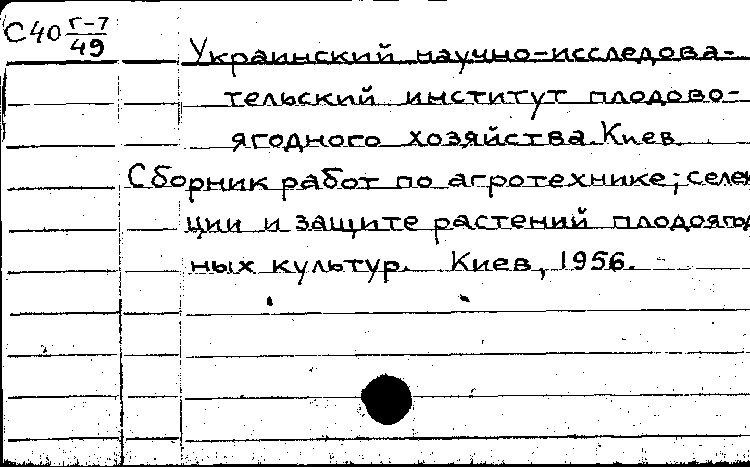 С40 Г-7/49
Украинский научно-исследова-
тельский институт плодово-
ягодного хозяйства. Киев.
Сборник работ по агротехнике, селек
ции и защите растений плодоягод
ных культур. Киев, 1956.